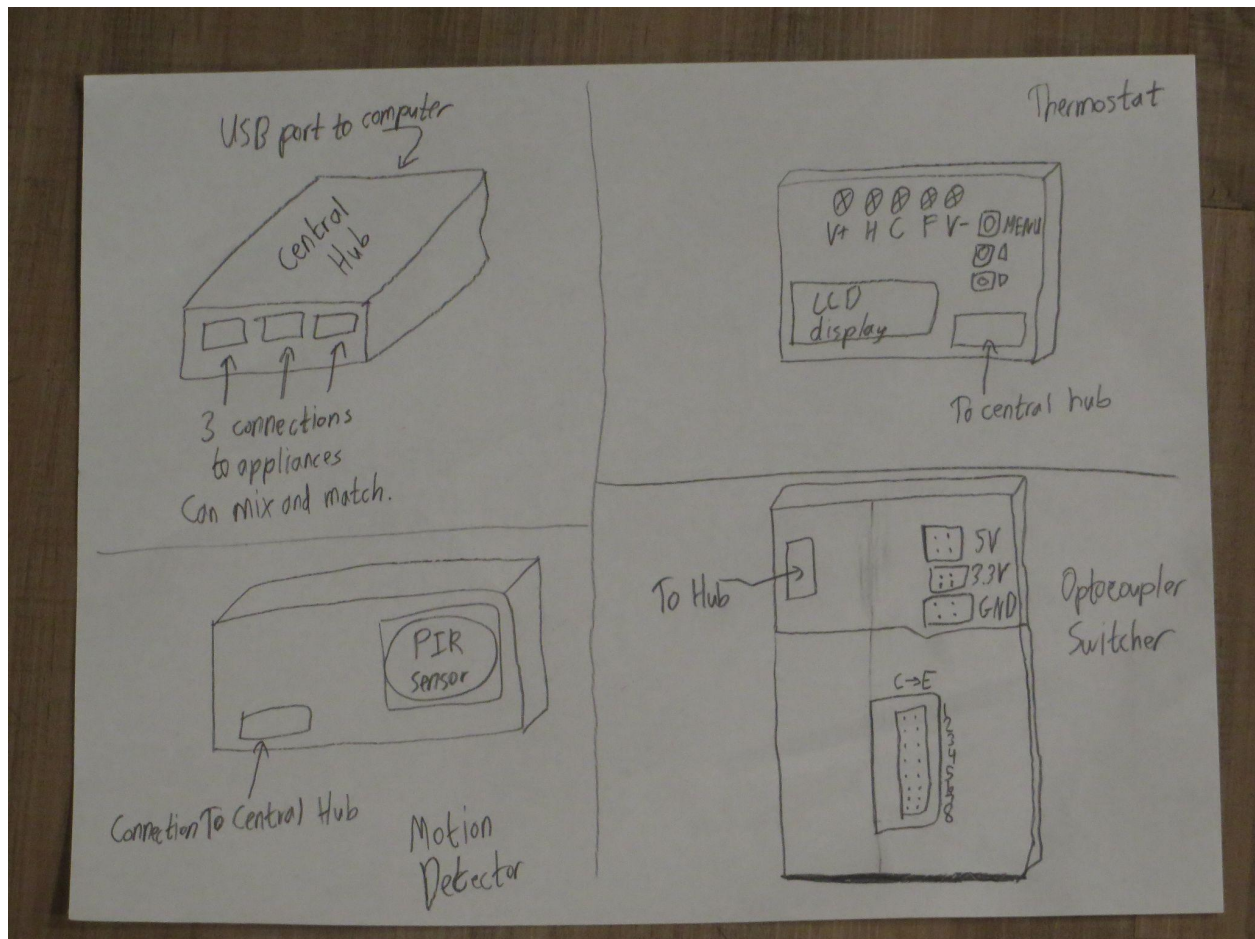 USB port to computer
Central
Hub
3 connections
to appliances
Can mix and match.
Thermostat
V+ H C F V- MENU
LCD
display
To central hub
PIR
sensor
Connection To Central Hub
Motion
Detector
To Hub
5V
3.3V
GND
Optocoupler
Switcher
C→E
1
2
3
4
5
6
7
8